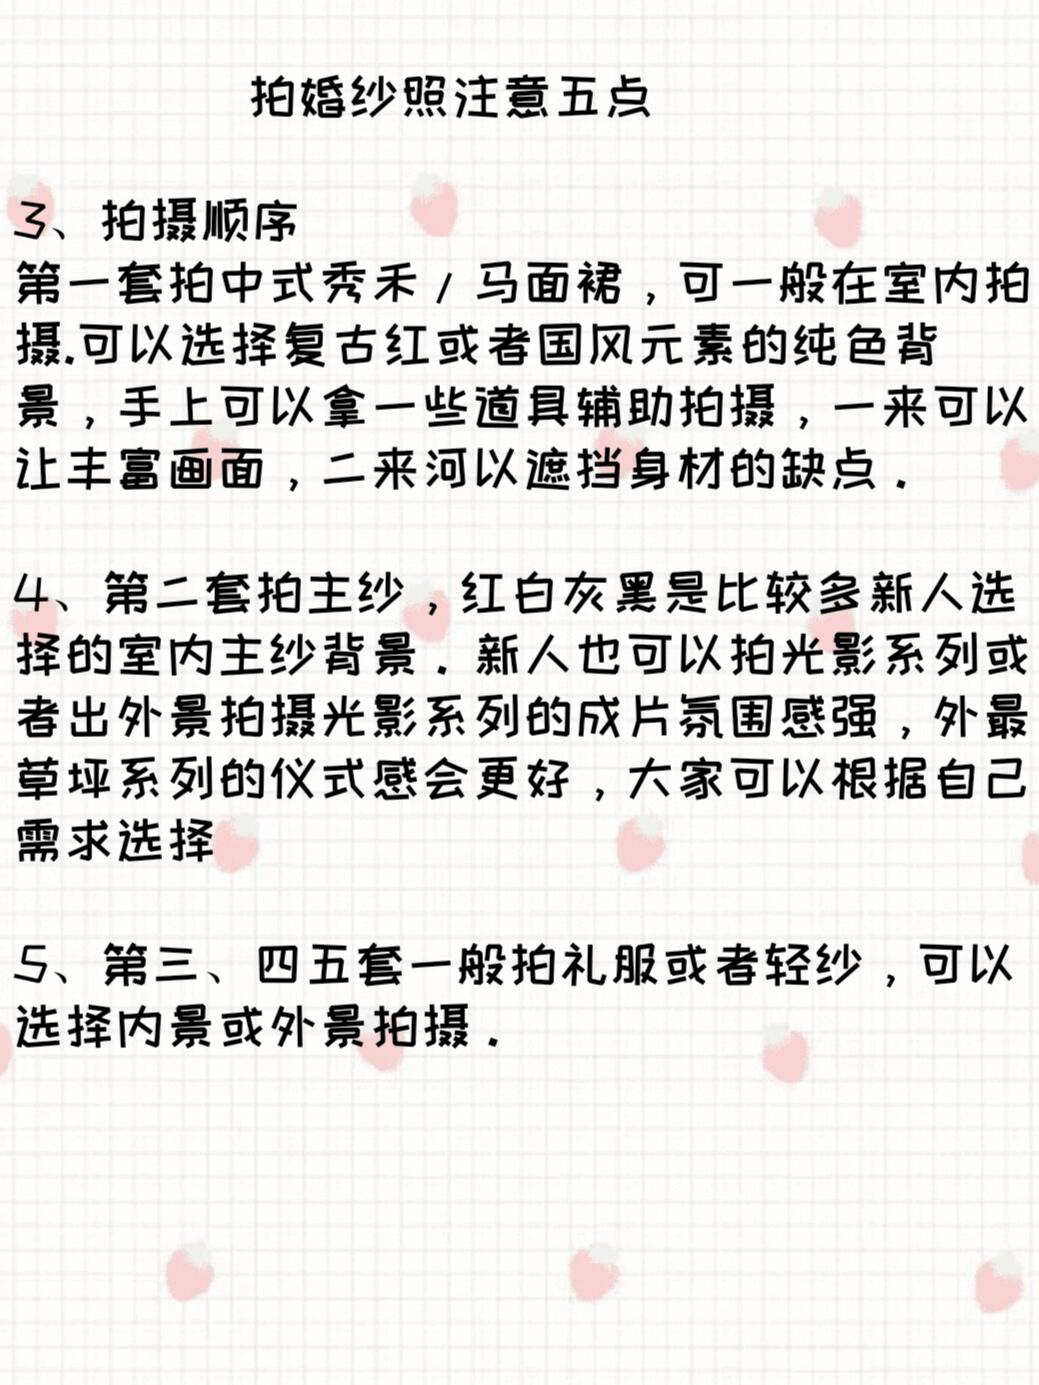 拍婚纱照注意五点
3、拍摄顺序
第一套拍中式秀禾/马面裙，可一般在室内拍
摄.可以选择复古红或者国风元素的纯色背
景，手上可以拿一些道具辅助拍摄，一来可以
让丰富画面，二来河以遮挡身材的缺点.
4、第二套拍主纱，红白灰黑是比较多新人选
择的室内主纱背景.新人也可以拍光影系列或
者出外景拍摄光影系列的成片氛围感强，外最
草坪系列的仪式感会更好，大家可以根据自己
需求选择
5、第三、四五套一般拍礼服或者轻纱，可以
选择内景或外景拍摄.